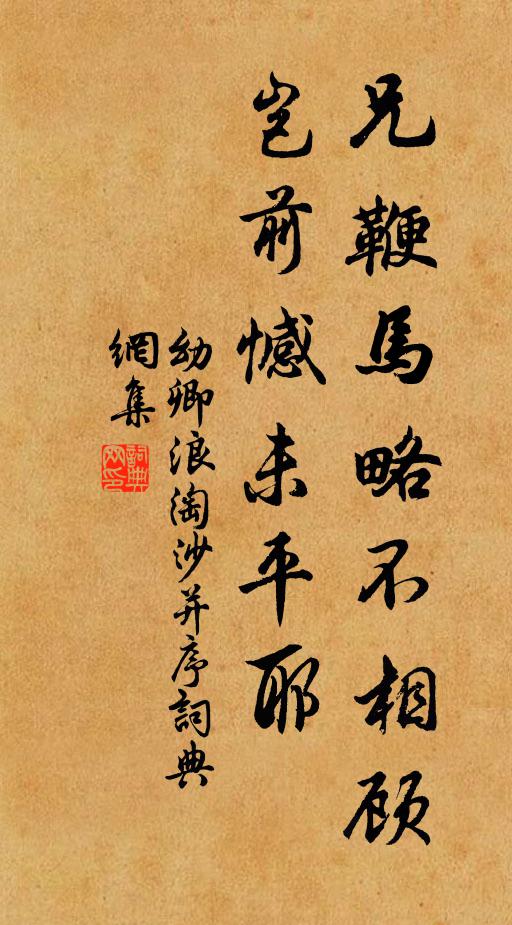 兄鞭馬略不相顾
豈前憾未平耶
幼卿浪淘沙并序詞典
網集
詞典
网印